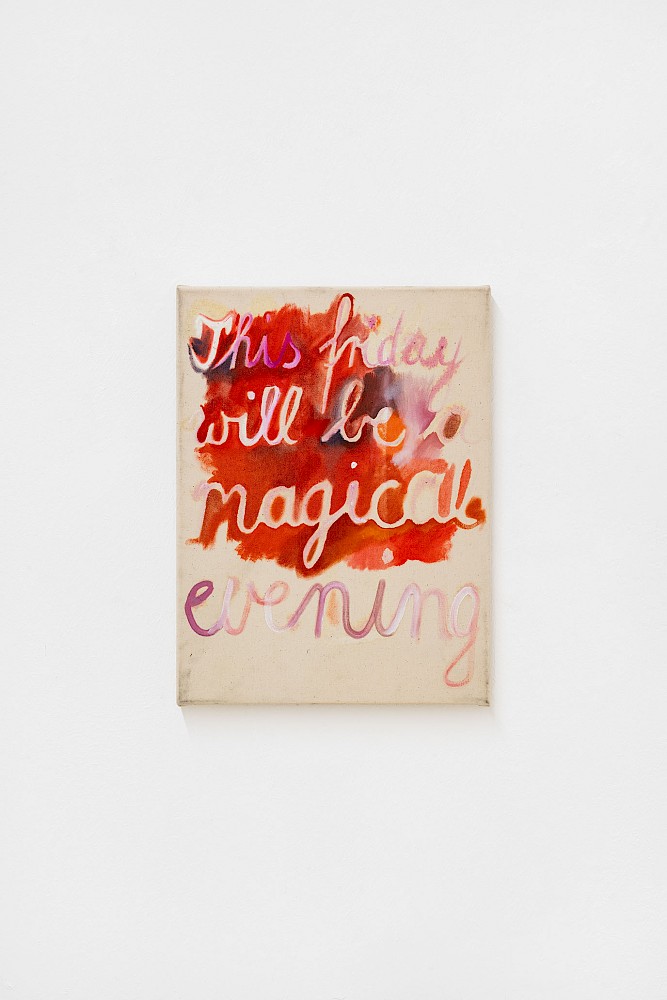 This friday
will be a
magical
evening